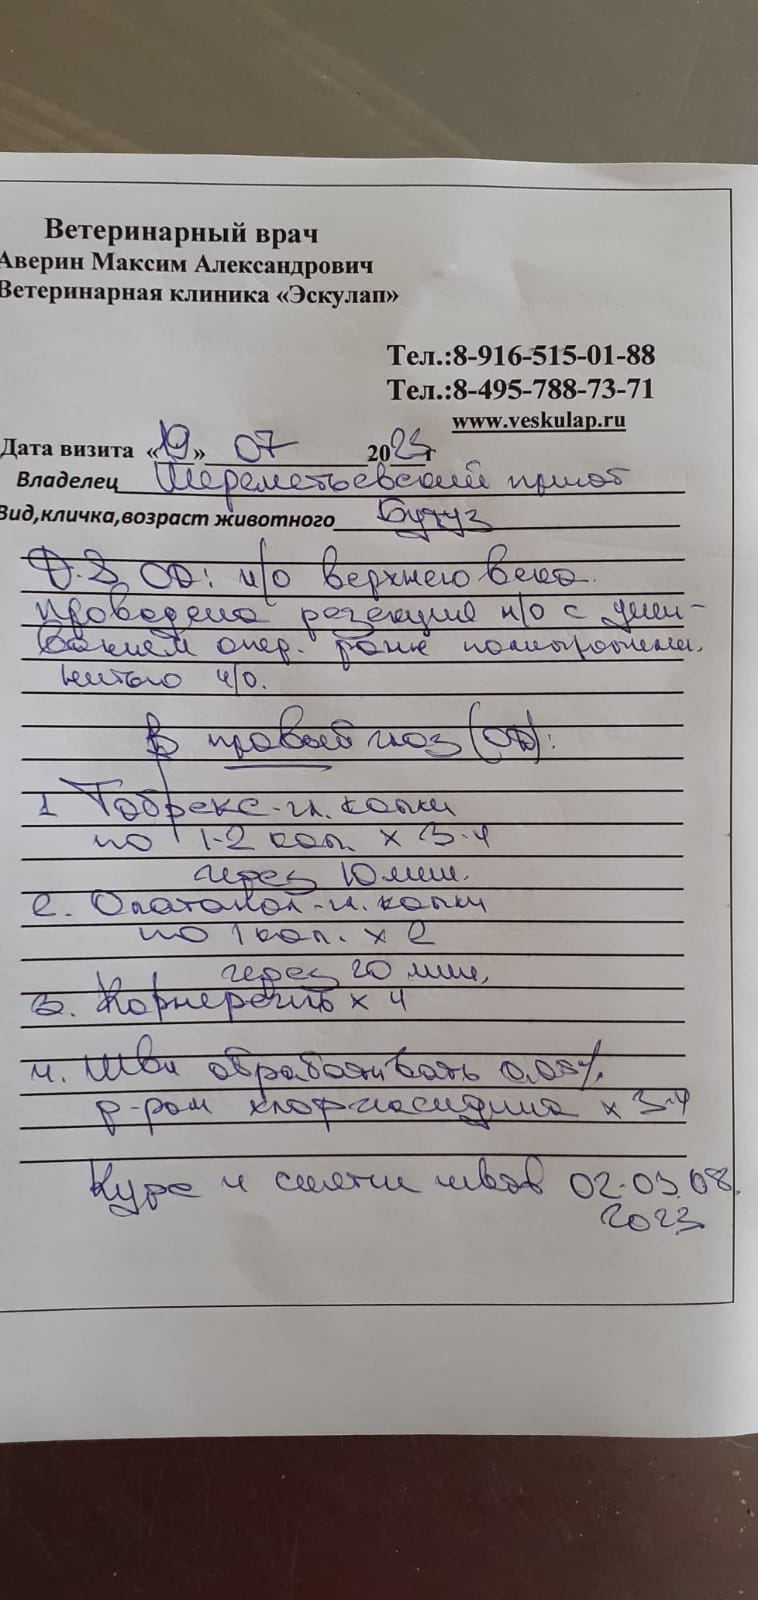 Ветеринарный врач
Аверин Максим Александрович
Ветеринарная клиника «Эскулап»
Тел.:8-916-515-01-88
Тел.:8-495-788-73-71
www.veskulap.ru
Дата визита «19» 07 2023г
Владелец Шереметьевский приют
Вид,кличка,возраст животного Бутуз
D.S, OD: н/о верхнего века.
Проведена резекция н/о с ушиванием
опер. раны
н/о.
В правый глаз (OD):
1 Тобрекс-гл. капли
по 1-2 кап. x 3-4
через 10 мин.
2. Опатанол-гл. капли
по 1 кап. x 2
через 20 мин,
3. Корнерегель x 4
4. Швы обрабатывать 0,05%
р-ром хлоргексидина x 3-4
Курс и снятие швов 02-03.08.
2023